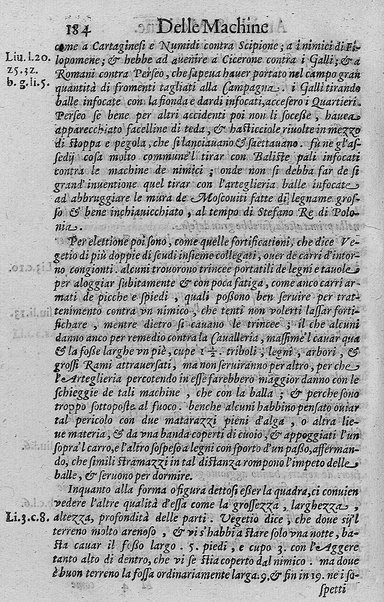 184 Delle Machine
Liu. l.20.
25.32.
b. g. li.5.
come a Cartaginesi e Numidi contra Scipione; a i nimici di Fi
lopomene; & hebbe ad auenire a Cicerone contra i Galli; & a
Romani contra Perseo, che sapeua hauer portato nel campo gran
quantità di fromenti tagliati alla Campagna. i Galli tirando
balle infocate con la fionda e dardi infocati, accesero i Quartieri.
Perseo se bene per altri accidenti poi non li socesse, hauea
apparecchiato facelline di teda, & hasticciole riuolte in mezzo
di stoppa e pegola, che si lanciauano & saettauano. fu ne gl'as-
sedij cosa molto commune'l tirar con Baliste pali infocati
contra le machine de nimici; onde non si debba far de si
grand'inuentione quel tirar con l'arteglieria balle infocate
ad abbruggiare le mura de Moscouiti fatte di legname gros-
so & bene inchiauicchiato, al tempo di Stefano Re di Polo-
nia.
Per elettione poi sono, come quelle fortificationi, che dice Ve-
getio di più doppie di scudi insieme collegati, ouer de carri d'intor-
no, congionti. alcuni trouorono trincee portatili de legni e tauole
per alloggiar subitamente & con poca fatiga, come anco carri ar-
mati de picche e spiedi, quali possono ben seruire per trat-
tenimento contra vn nimico, che tenti non volerti lassar forti-
fichare, mentre dietro si cauano le trincee; il che alcuni
danno anco per remedio contra la Caualleria, massime'l cauar qua
& là fosse larghe vn piè, cupe 1 1/2. triboli, legni, arbori, &
grossi Rami attrauersati, ma non seruiranno per altro, per che
l'Arteglieria percotendo in esse farebbero maggior danno con le
schieggie de tali machine, che con la balla; & perche sono
troppo sottoposte al fuoco. benche alcuni habbino pensato ouiar
tal pericolo con due matarazzi pieni d'alga, o altra lie-
ue materia, & da vna banda coperti di cuoio, & appoggiati l'un
sopra'l carro, e l'altro sospeso a legni con sporto d'un passo, afferman-
do, che simili stramazzi in tal distanza rompono l'impeto delle
balle, & seruono per dormire.
Inquanto alla forma o figura dettosi esser la quadra, ci conuien
vedere l'altre qualità d'essa come la grossezza, larghezza,
Li.3.c.8.
altezza, profondità delle parti. Vegetio dice, che doue si'l
terreno molto arenoso, & vi s'habbi a stare solo vna notte, ba-
sta cauar il fosso largo. 5. piedi, e cupo 3. con l'Aggere
tanto alto di dentro, che vi se sia coperto dal nimico. ma doue
è buon terreno la fossa ordinariamente larga. 9. & fin in 19. ne i sa-
spetti